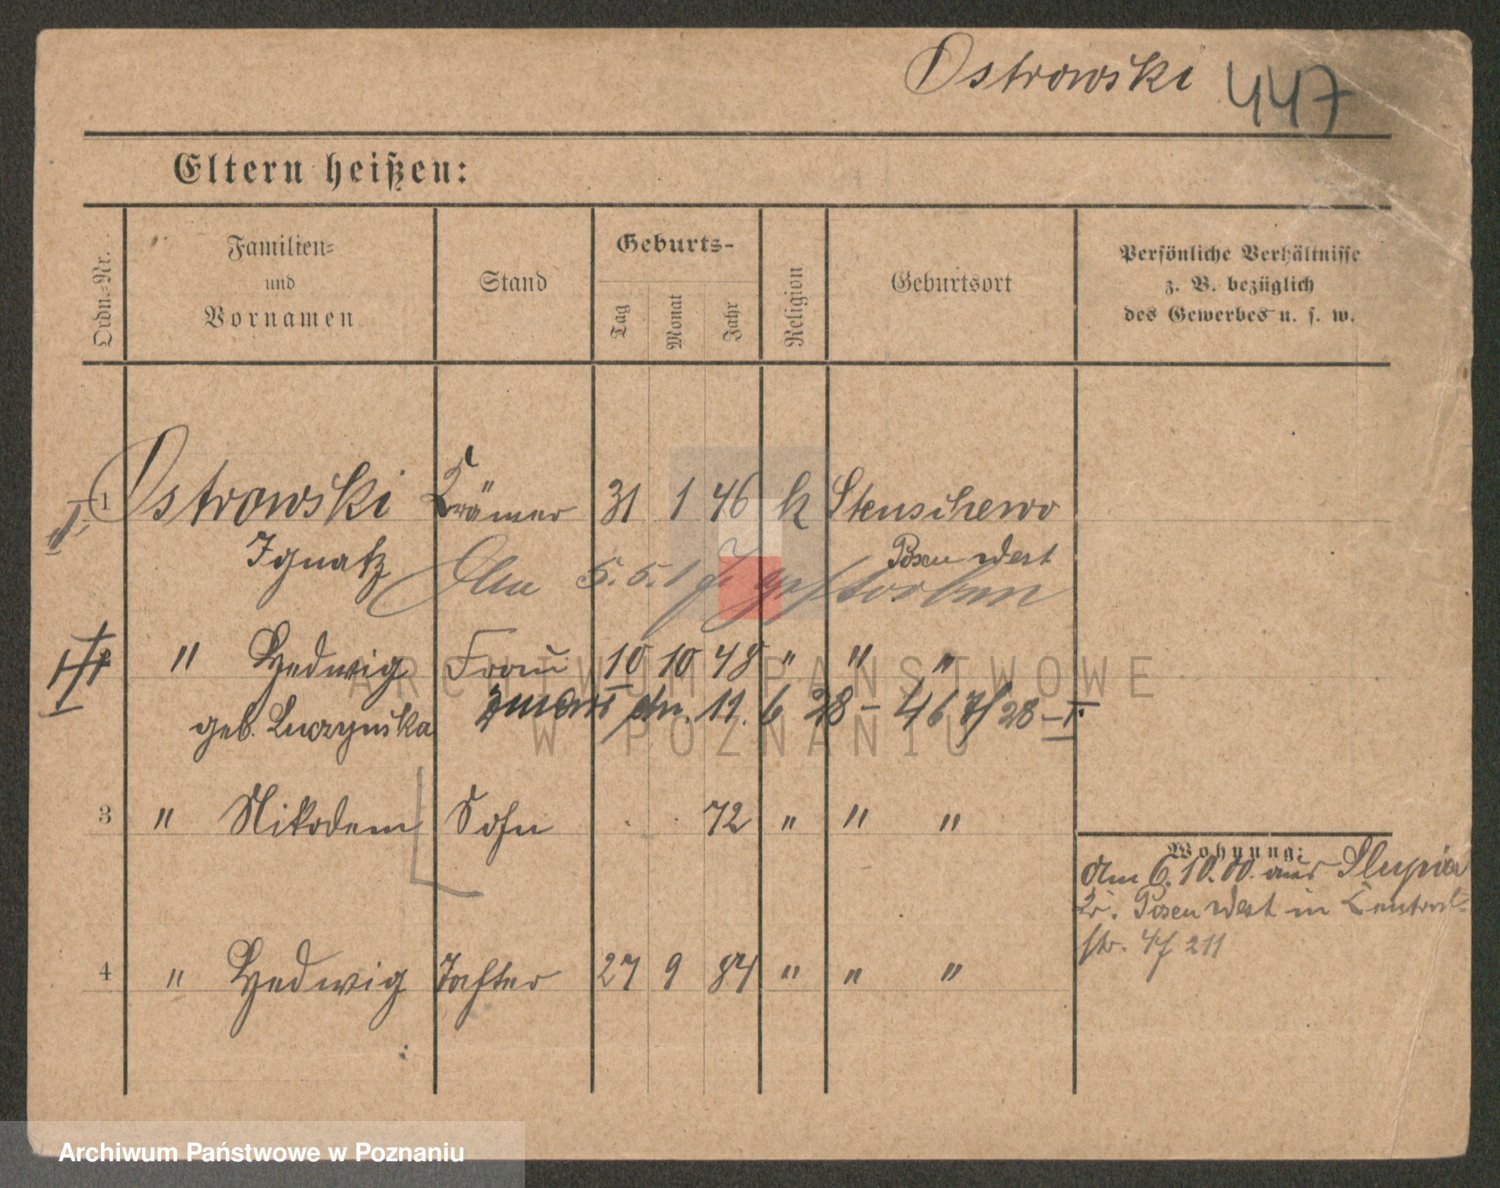 Ostrowski 447
Eltern heißen:
Ordn.-Nr.
Familien-
und
Vornamen
Stand
Geburts-
Tag
Monat
Jahr
Religion
Geburtsort
Persönliche Verhältnisse
z. B. bezüglich
des Gewerbes u. s. w.
1 Ostrowski Krämer 31 1 46 k Stenschewo
Ignatz Posen West
Am 5. 5. gestorben
" Hedwig Frau 10 10 48 " " "
geb. Luczynska
zmarł dn. 11. 6 28 - 467/28 - I.
3 " Nikodem Sohn . . 72 " " "
Wohnung:
Am 6.10.00. aus Slupia
Kr. Posen West in Central-
str. 4f 211
4 " Hedwig Tochter 27 9 84 " " "
ARCHIWUM PAŃSTWOWE
W POZNANIU
Archiwum Państwowe w Poznaniu